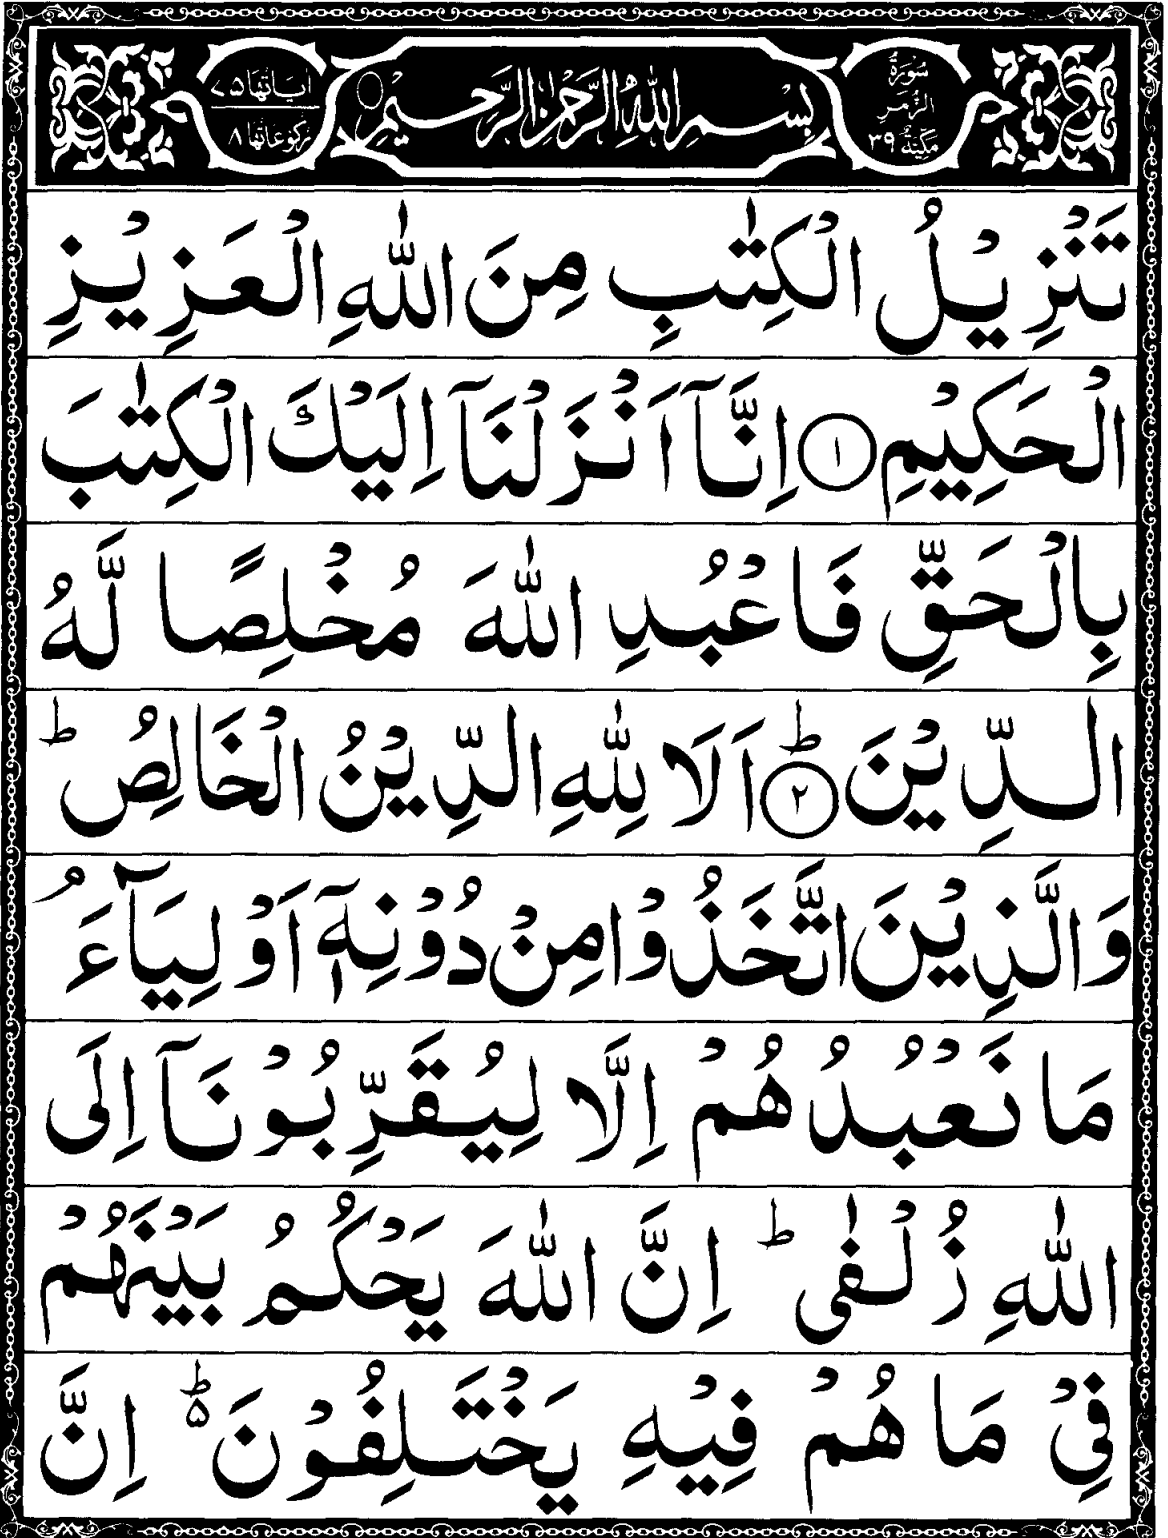 سُوْرَةُ الزُّمَرِ مَكِّيَّةٌ ٣٩
بِسْمِ اللّٰهِ الرَّحْمٰنِ الرَّحِيْمِ
اٰيَاتُهَا ٧٥
رُكُوْعَاتُهَا ٨
تَنْزِيْلُ الْكِتٰبِ مِنَ اللّٰهِ الْعَزِيْزِ
الْحَكِيْمِ ١ اِنَّاۤ اَنْزَلْنَاۤ اِلَيْكَ الْكِتٰبَ
بِالْحَقِّ فَاعْبُدِ اللّٰهَ مُخْلِصًا لَّهُ
الدِّيْنَ ؕ ٢ اَلَا لِلّٰهِ الدِّيْنُ الْخَالِصُ ؕ
وَالَّذِيْنَ اتَّخَذُوْا مِنْ دُوْنِهٖۤ اَوْلِيَآءَ ۘ
مَا نَعْبُدُهُمْ اِلَّا لِيُقَرِّبُوْنَاۤ اِلَى
اللّٰهِ زُلْفٰى ؕ اِنَّ اللّٰهَ يَحْكُمُ بَيْنَهُمْ
فِيْ مَا هُمْ فِيْهِ يَخْتَلِفُوْنَ ؕ ۵ اِنَّ